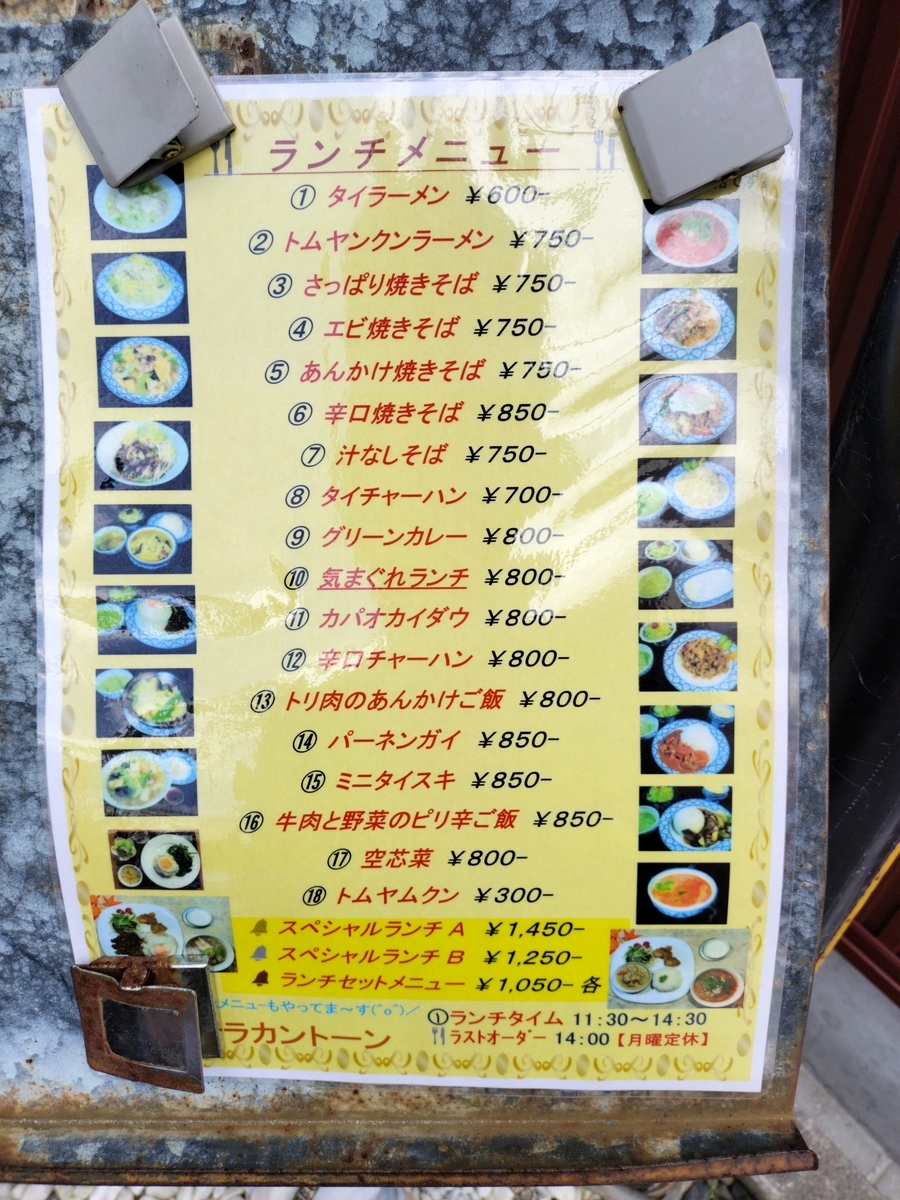 ランチメニュー
① タイラーメン ￥600-
② トムヤンクンラーメン ￥750-
③ さっぱり焼きそば ￥750-
④ エビ焼きそば ￥750-
⑤ あんかけ焼きそば ￥750-
⑥ 辛口焼きそば ￥850-
⑦ 汁なしそば ￥750-
⑧ タイチャーハン ￥700-
⑨ グリーンカレー ￥800-
⑩ 気まぐれランチ ￥800-
⑪ カパオカイダウ ￥800-
⑫ 辛口チャーハン ￥800-
⑬ トリ肉のあんかけご飯 ￥800-
⑭ パーネンガイ ￥850-
⑮ ミニタイスキ ￥850-
⑯ 牛肉と野菜のピリ辛ご飯 ￥850-
⑰ 空芯菜 ￥800-
⑱ トムヤムクン ￥300-
スペシャルランチ A ￥1,450-
スペシャルランチ B ￥1,250-
ランチセットメニュー ￥1,050- 各
メニューもやってま～す(^o^)／
ラカントーン
ランチタイム 11:30～14:30
ラストオーダー 14:00【月曜定休】